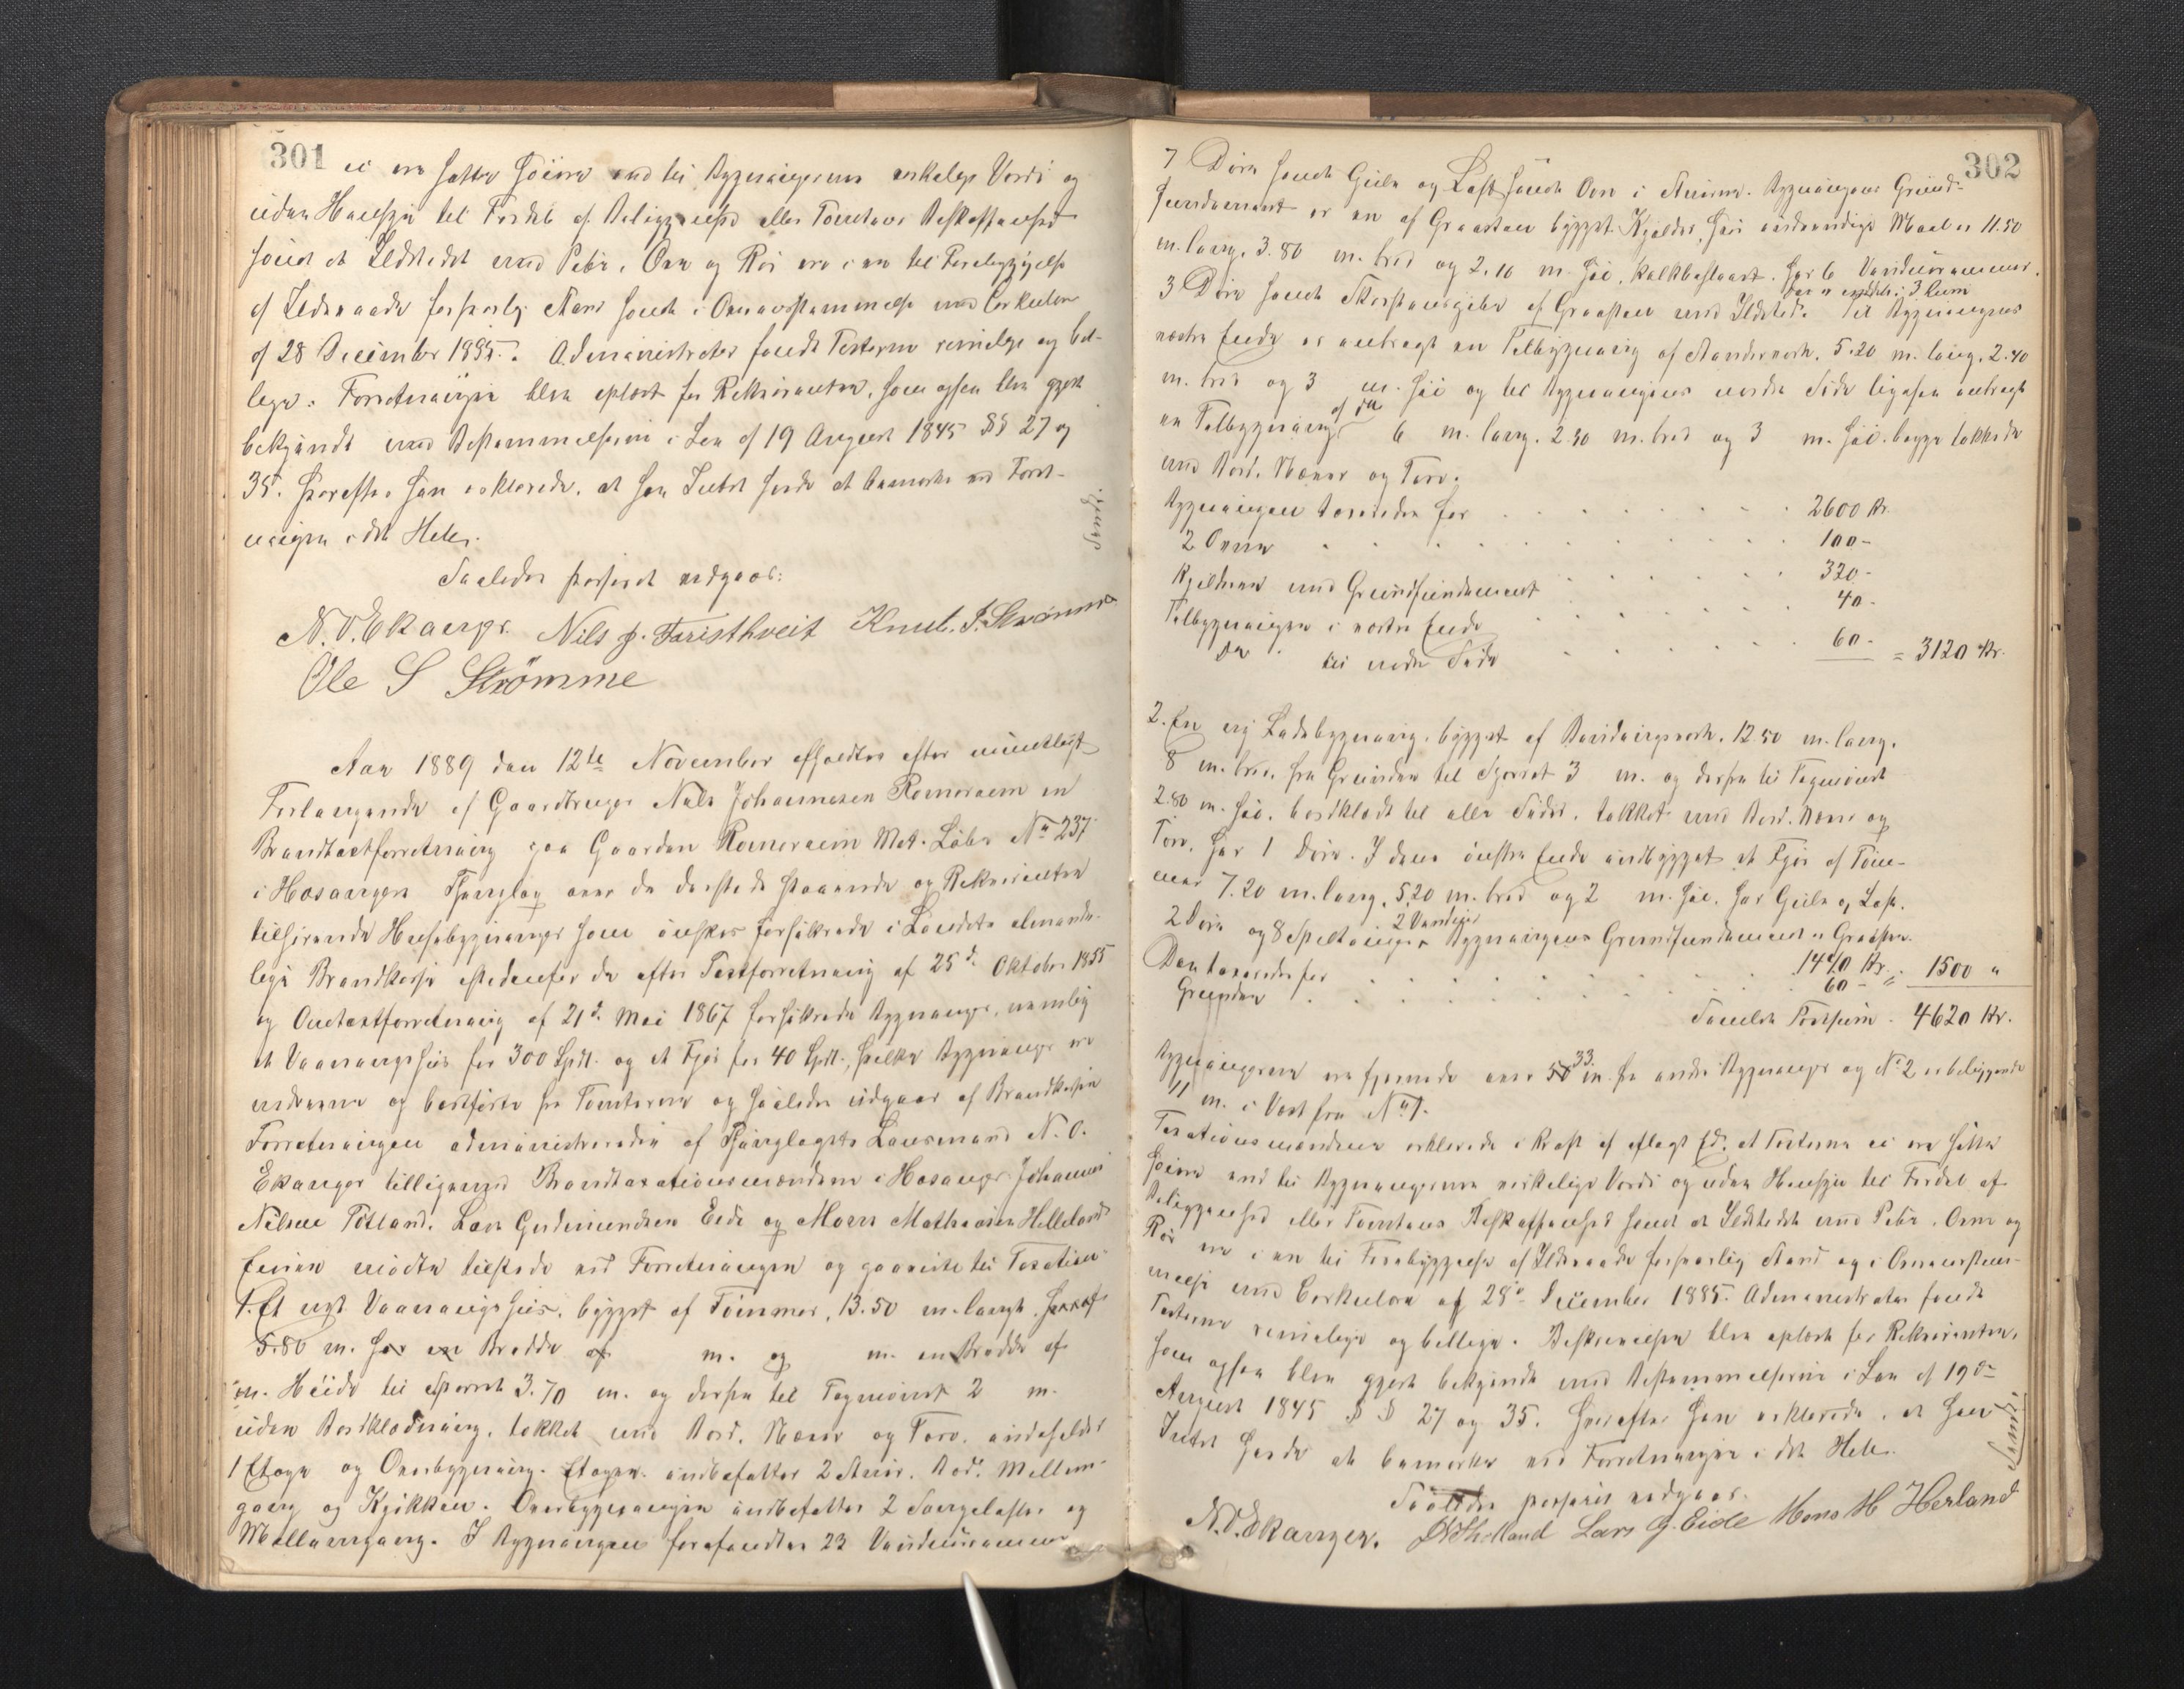 301
ei ere satte høiere end til Bygningernes virkelige Værdi og
uden Hensyn til Fordel af Beliggenhed eller Tomtens Beskaffenhed
samt at Ildstedet med Pibe, Ovn og Rør ere i en til Forebyggelse
af Ildsvaade forsvarlig Stand samt i Overensstemmelse med Cirkulær
af 28 December 1885. Administrator fandt Taxterne rimelige og bil-
lige. Forretningen blev oplæst for Rekvirenten, som ogsaa blev gjort
bekjendt med Bestemmelserne i Lov af 19 August 1845 §§ 27 og
35. Hvorefter han erklærede, at han Intet havde at bemærke ved Forret-
ningen i det Hele.
Saaledes passeret vedgaar:
N.O. Ekanger. Nils J. Færisthveit Knut. J. Strømme
Ole S Strömme
Aar 1889 den 12te November afholdtes efter mundtligt
Forlangende af Gaardbruger Nils Johannesen Romereim en
Brandtaxtforretning paa Gaarden Romereim Mat. Løbe No 237
i Hosanger Thinglag over de dersteds staaende og Rekvirenten
tilhørende Huusebygninger som ønskes forsikrede i Landets alminde-
lige Brandkasse istedenfor de efter Taxtforretning af 25de Oktober 1855
og Omtaxtforretning af 21de Mai 1867 forsikrede Bygninger, nemlig
et Vaaningshus for 300 Spd. og et Fjøs for 40 Spd., hvilke Bygninger ere
nedrevne og bortførte fra Tomterne og saaledes udgaar af Brandkassen
Forretningen administreredes af Thinglagets Lensmand N. O.
Ekanger tilligemed Brandtaxationsmændene i Hosanger Johannes
Nilsen Totland, Lars Gudmundsen Eide og Mons Mathiasen Helleland
Eieren mødte tilstede ved Forretningen og gaves til Taxation
1. Et nyt Vaaningshus, bygget af Tømmer, 13.50 m. langt, hvoraf
5.80 m. har en Bredde af m. og m. en Bredde af
m. Høide til Sperret 3.70 m. og derfra til Tagmønet 2 m.
uden Bordklædning, tækket med Bord, Næver og Torv, indeholder
1 Etage og Overbygning. Etagen indbefatter 2 Stuer, Bod, Mellem-
gang og Kjøkken. Overbygningen indbefatter 2 Sengelofter og
Mellemgang. I Bygningen forefandtes 23 Vinduesrammer
302
7 Døre samt Gulv og Loft samt Ovn i Stuerne. Bygningens Grund-
fundament er en af Graasten bygget Kjelder, hvis indvendige Maal er 11.50
m. lang, 3.80 m. bred og 2.10 m. høi, kalkbeslaaet, har 6 Vinduesrammer,
den er inddelt i 3 Rum
3 Døre samt Skorstensgrube af Graasten med Ildsted. Til Bygningens
vestre Ende er anbragt en Tilbygning af Stenderverk, 5.20 m. lang, 2.40
m. bred og 3 m. høi og til Bygningens nordre Side ligesaa anbragt
en Tilbygning af do 6 m. lang, 2.30 m. bred og 3 m. høi, begge tækkede
med Bord, Næver og Torv.
Bygningen taxeredes for 2600 Kr.
2 Ovne 100 -
Kjelderen med Grundfundament 320 -
Tilbygningen i vestre Ende 40 -
Do til nordre Side 60 - = 3120 Kr.
2. En ny Ladebygning, bygget af Bindingsverk, 12.50 m. lang,
8 m. bred, fra Grunden til Sperret 3 m. og derfra til Tagmønet
2.80 m. høi, bordklædt til alle Sider, tækket med Bord, Næver og
Torv, har 1 Dør. I dens østre Ende indbygget et Fjøs af Tøm-
mer 7.20 m. lang, 5.20 m. bred og 2 m. høi, har Gulv og Loft,
2 Vinduer
2 Døre og 8 Spiltoug. Bygningens Grundfundament er Graasten.
Den taxeredes for 1440 Kr.
Grunden 60 - = 1500 "
Samlet Taxtsum - 4620 Kr.
33
Bygningerne ere fjernede over 50 m. fra andre Bygninger og No 2 er beliggende
11 m. i Vest fra No 1.
Taxationsmændene erklærede i Kraft af aflagt Ed, at Taxterne ei ere satte
høiere end til Bygningernes virkelige Værdi og uden Hensyn til Fordel af
Beliggenhed eller Tomtens Beskaffenhed samt at Ildstedet med Pibe, Ovne og
Rør ere i en til Forebyggelse af Ildsvaade forsvarlig Stand og i Overensstem-
melse med Cirkulære af 28de December 1885. Administrator fandt
Taxterne rimelige og billige. Beskrivelsen blev oplæst for Rekvirenten,
som ogsaa blev gjort bekjendt med Bestemmelserne i Lov af 19de
August 1845 § § 27 og 35. Hvorefter han erklærede, at han
Intet havde at bemærke ved Forretningen i det Hele.
Saaledes passeret vedgaar.
N.O. Ekanger. Lars G. Eide Mons M Herland